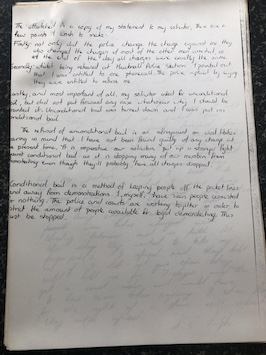 The attatched is a copy of my statement to my solicitor, there are a
few points I wish to make:
Firstly not only did the police change the charge against me they
also changed the charges of most of the other men arrested so
at the end of the day all charges were exactly the same.
Secondly whilst being retained at Police Station I pointed out
that I was entitled to one phonecall. The police replied by saying
they were entitled to refuse me.
Lastly, and most important of all, my solicitor asked for unconditional
bail, but did not put forward any reason whatsoever why I should be
granted it. Unconditional bail was turned down and I was put on
conditional bail.
The refusal of unconditional bail is an infringement on civil liberties
bearing in mind that I have not been found guilty of any charge at
the present time. It is imperative our solicitors put up a stronger fight
against conditional bail as it is stopping many of our members from
demonstrating even though they'll probably have all charges dropped.
Conditional bail is a method of keeping people off the picket lines
and away from demonstrations. I, myself, have seen people arrested
for nothing. The police and courts are working together in order to
restrict the amount of people available for legal demonstrating. This
must be stopped.